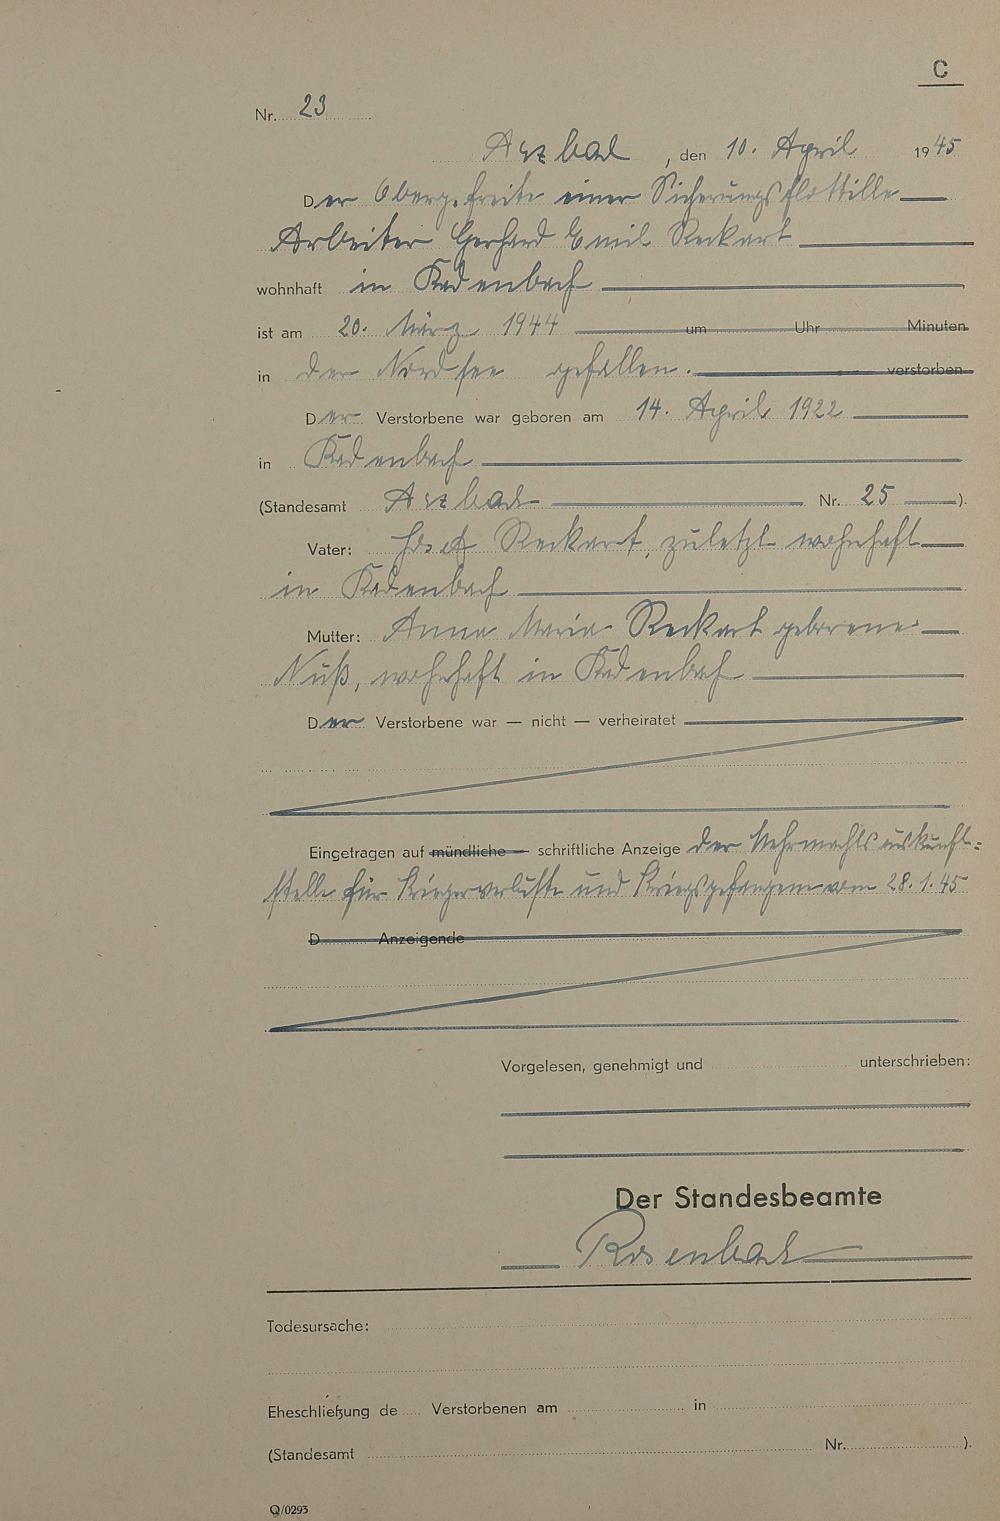 C
Nr. 23
Arzbach, den 10. April 1945
Der Obergefreite einer Sicherungsflottille
Arbeiter Gerhard Emil Reckart
wohnhaft in Kadenbach
ist am 20. März 1944 um Uhr Minuten
in der Nordsee gefallen. verstorben
Der Verstorbene war geboren am 14. April 1922
in Kadenbach
(Standesamt Arzbach Nr. 25 ).
Vater: Josef Reckart, zuletzt wohnhaft
in Kadenbach
Mutter: Anna Maria Reckart geborene
Nuß, wohnhaft in Kadenbach
Der Verstorbene war — nicht — verheiratet
Eingetragen auf mündliche — schriftliche Anzeige der Wehrmachtsauskunft-
stelle für Kriegerverluste und Kriegsgefangene vom 28.1.45
D Anzeigende
Vorgelesen, genehmigt und unterschrieben:
Der Standesbeamte
Rosenbach
Todesursache:
Eheschließung de Verstorbenen am in
(Standesamt Nr. ).
Q/0293